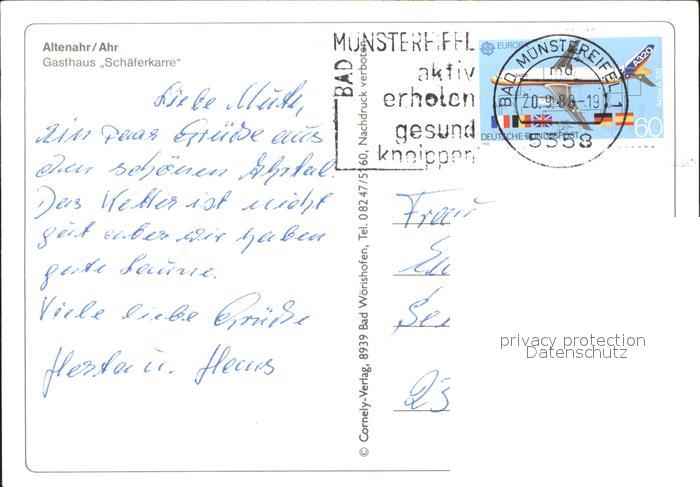 Altenahr/Ahr
Gasthaus „Schäferkarre"
Liebe Mutti,
ein paar Grüße aus
dem schönen Ahrtal.
Das Wetter ist nicht
gut aber wir haben
gute Laune.
Viele liebe Grüße
Herta u. Hans
© Cornely-Verlag, 8939 Bad Wörishofen, Tel. 0 82 47/5160, Nachdruck verboten
BAD MÜNSTEREIFEL
aktiv
erholen
gesund
kneippen
EUROPA
A320
60
DEUTSCHE BUNDESPOST
BAD MÜNSTEREIFEL 1
md
20.9.88-19
5358
Frau
23
privacy protection
Datenschutz